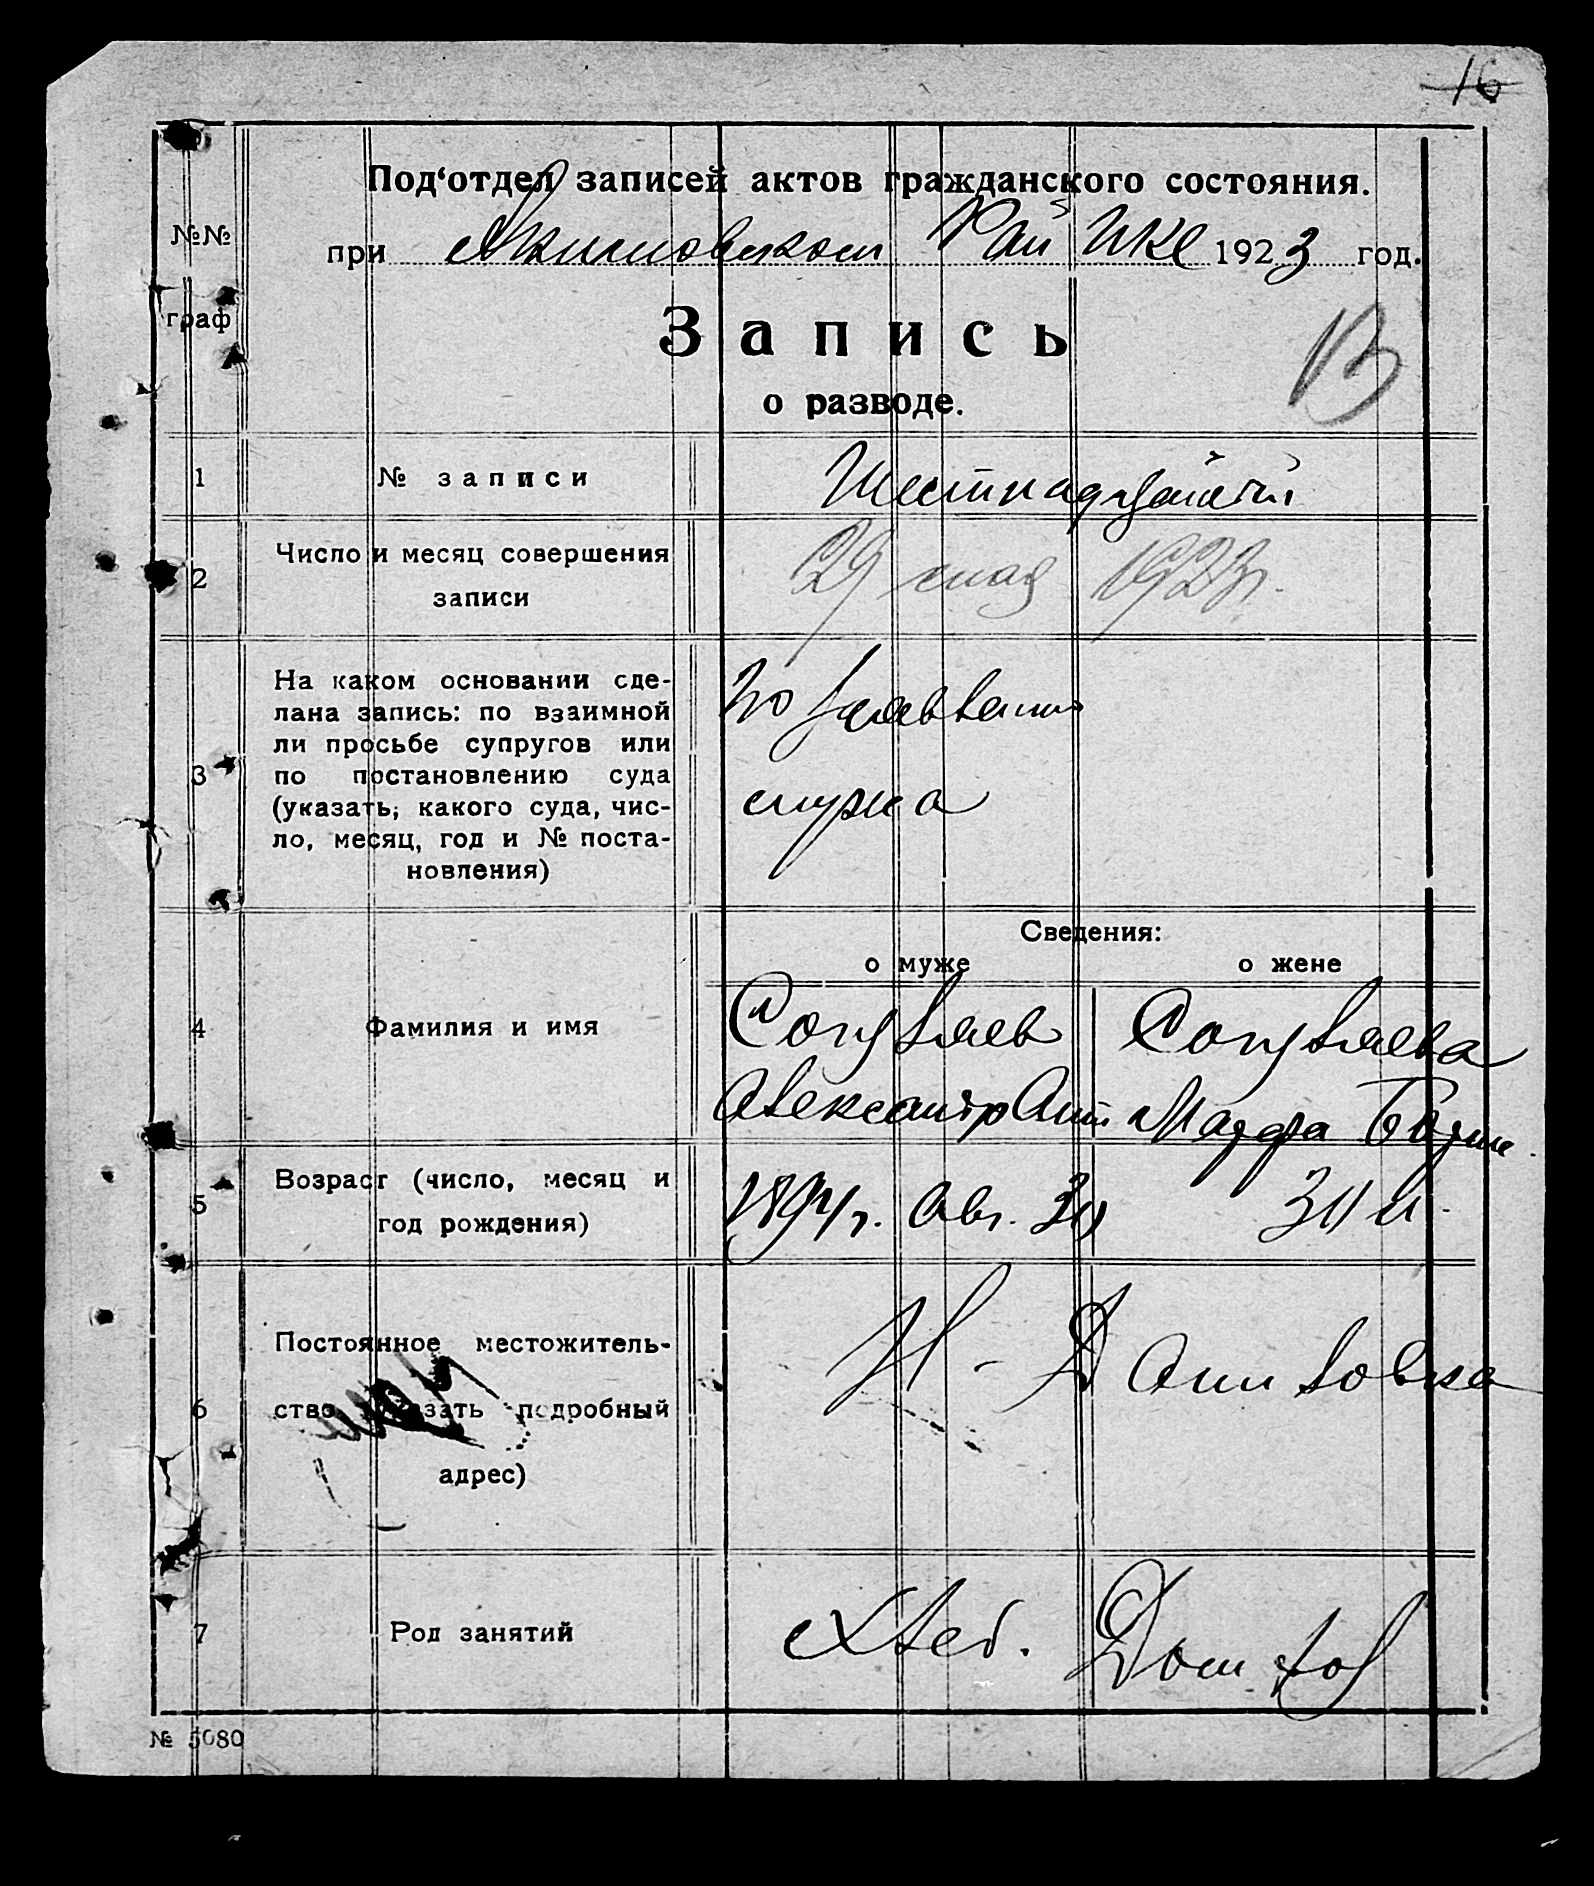 16
Под‘отдел записей актов гражданского состояния.
№№ граф
при Акимовском Рай ИКе 1923 год.
Запись
о разводе.
13
1 № записи Шестнадцатый
2 Число и месяц совершения записи 29 мая 1923г.
3 На каком основании сде-
лана запись: по взаимной
ли просьбе супругов или
по постановлению суда
(указать, какого суда, чис-
ло, месяц, год и № поста-
новления)
По заявлению
мужа
Сведения:
о муже о жене
4 Фамилия и имя
Александр Ант Марфа
5 Возраст (число, месяц и
год рождения)
Авг. 30 30 л.
6 Постоянное местожитель-
ство указать подробный
адрес)
Н-Даниловка
7 Род занятий Хлеб. Дом хоз
№ 5080